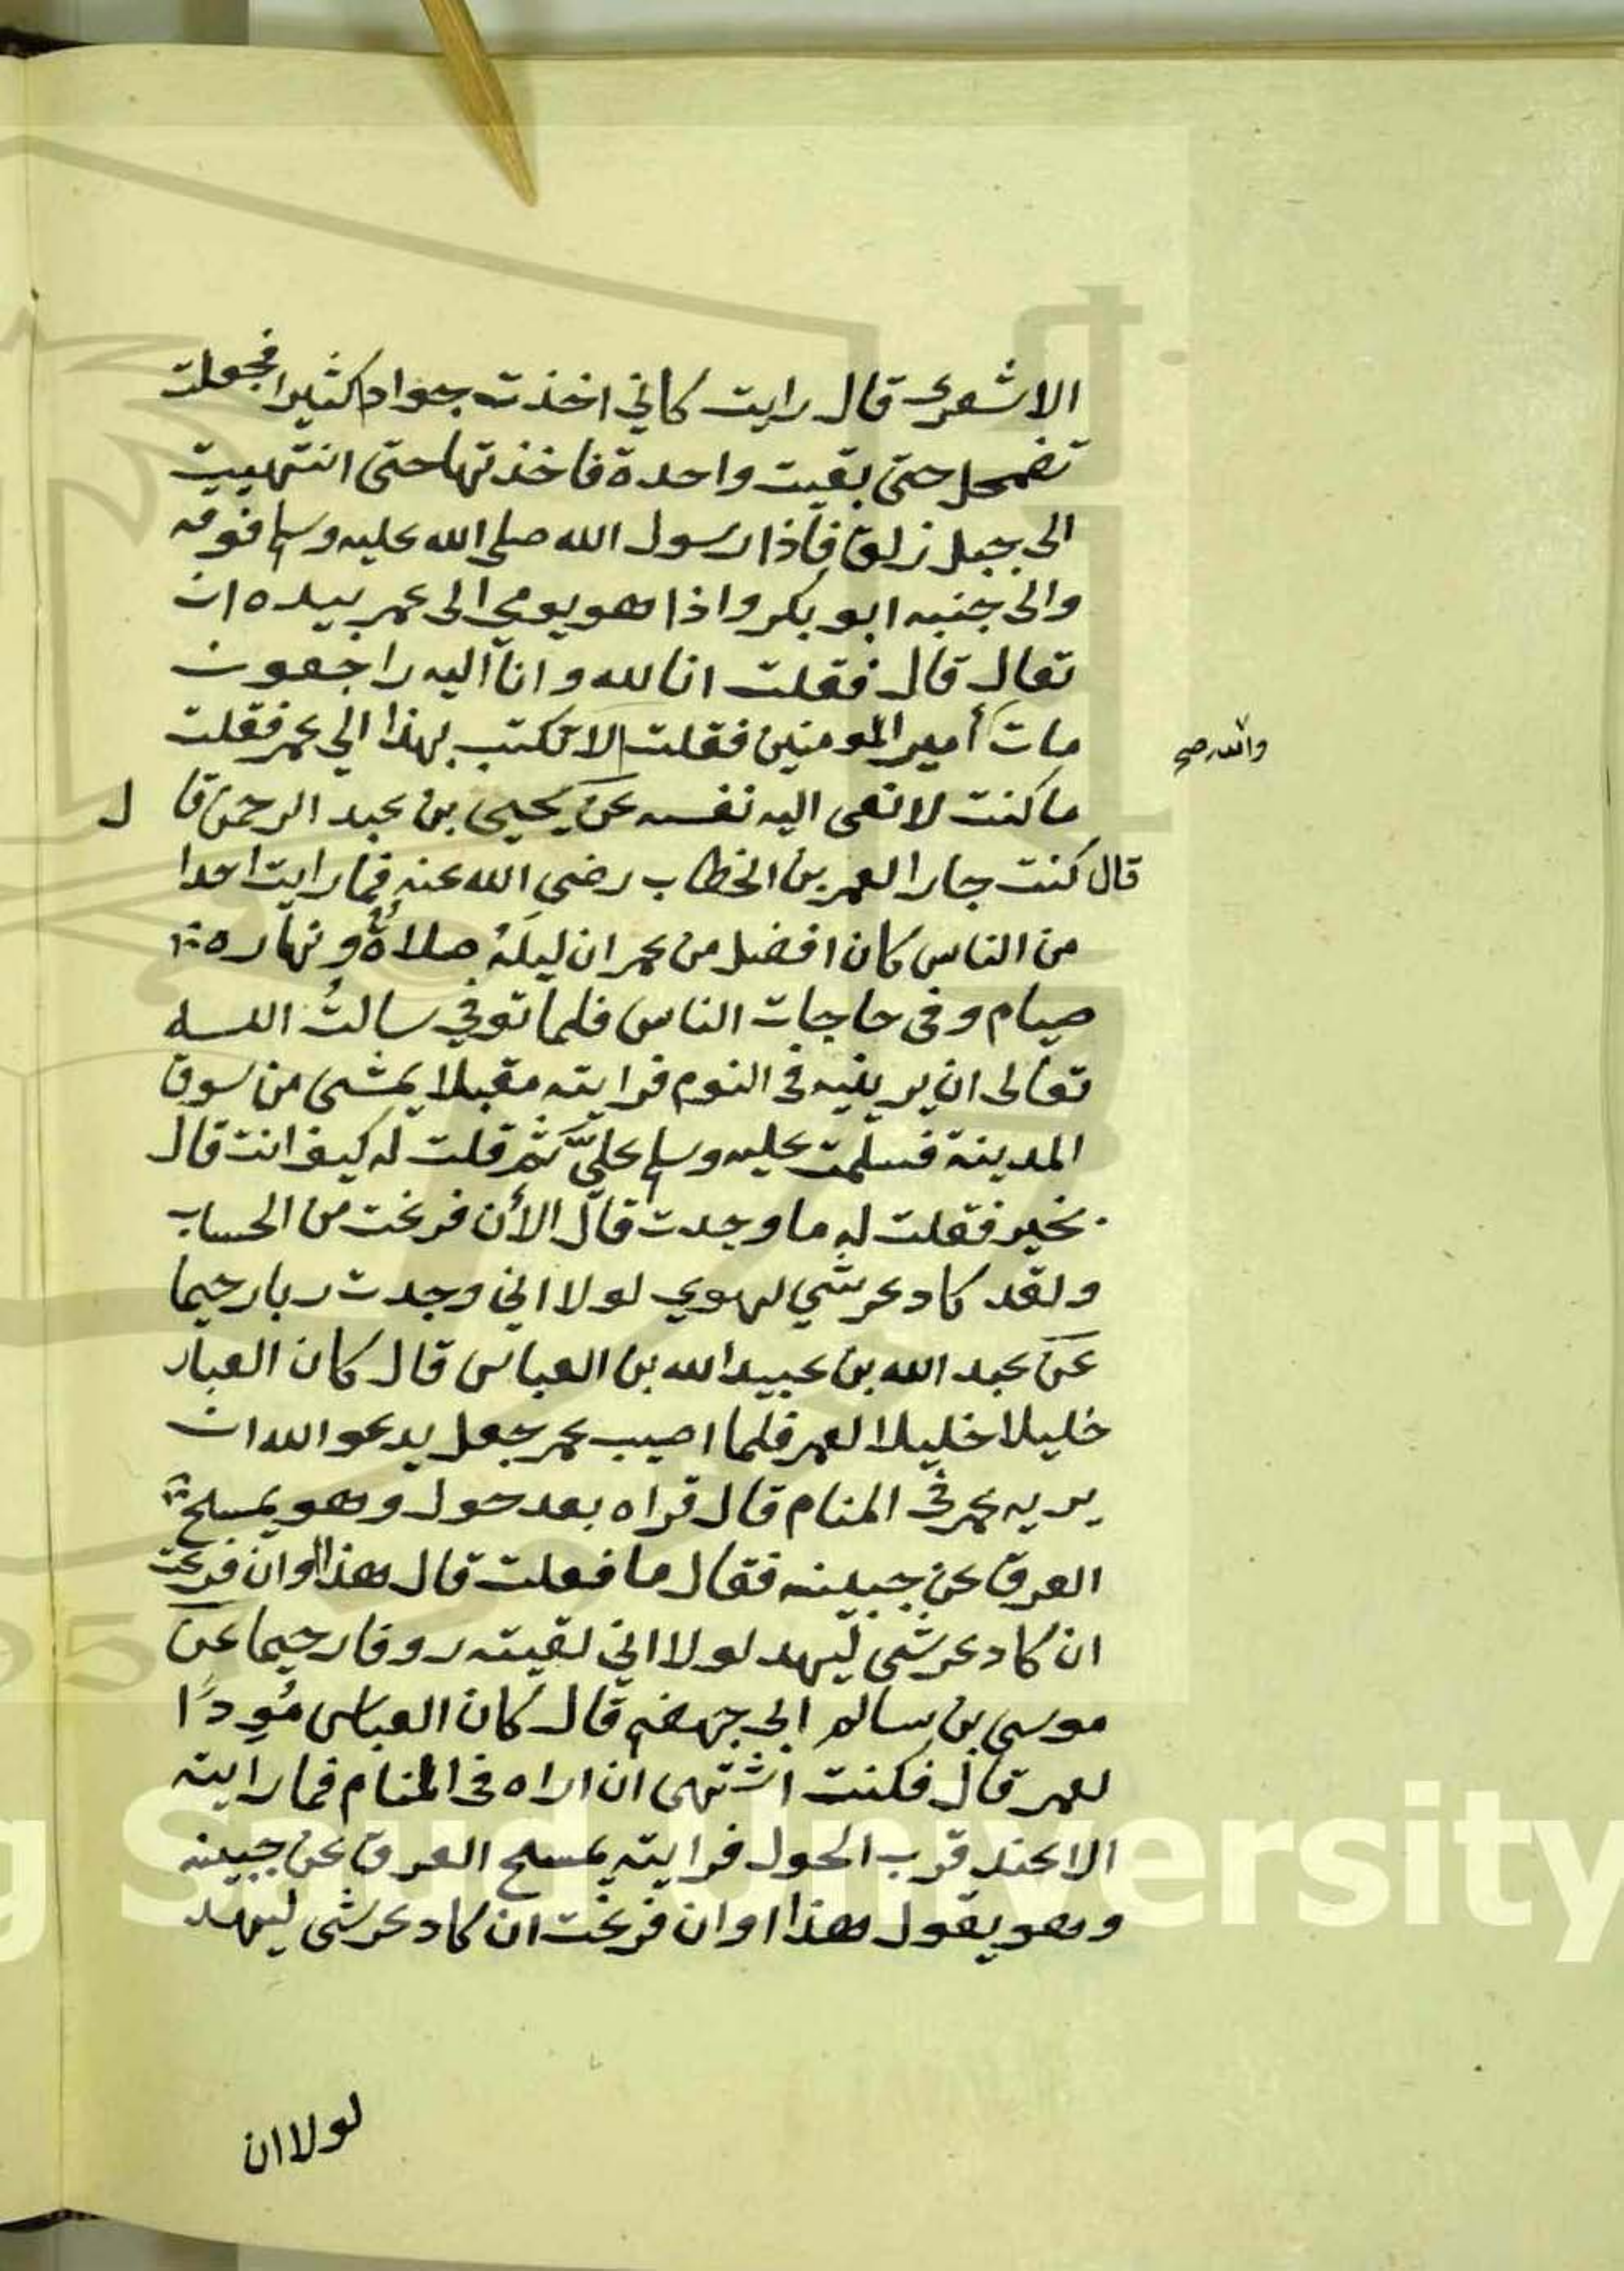 الاشعرى قال رايت كاني اخذت جوادا كثيرا فجعلت
تضمحل حتى بقيت واحدة فاخذتها حتى انتهييت
الى جبل زلق فاذا رسول الله صلى الله عليه وسلم فوقه
والى جنبه ابو بكر واذا هو يومي الى عمر بيده ان
تعال قال فقلت انا لله وانا اليه راجعون
مات أمير المومنين فقلت الا تكتب بهذا الي عمر فقلت
والله صح
ما كنت لانعى اليه نفسه عن يحيى بن عبد الرحمن قا ل
قال كنت جارا لعمر بن الخطاب رضى الله عنه فما رايت احدا
من الناس كان افضل من عمر ان ليلَهُ صلاةٌ ونهاره
صيام وفى حاجات الناس فلما توفي سالتُ الله
تعالى ان يرينيه فى النوم فرايته مقبلا يمشى من سوق
المدينة فسلمت عليه وسلم عليَّ ثم قلت له كيف انت قال
بخير فقلت له ما وجدت قال الأن فرغت من الحساب
ولقد كاد عرشي ليهوي لولا اني وجدت ربا رحيما
عن عبد الله بن عبيد الله بن العباس قال كان العباس
خليلا خليلا لعمر فلما اصيب عمر جعل يدعو الله ان
يريه عمر فى المنام قال فراه بعد حول وهو يمسح
العرق عن جبينه فقال ما فعلت قال هذا اوان فرغت
ان كاد عرشى ليهد لولا اني لقيته روفا رحيما عن
موسى بن سالم ابى جهضم قال كان العباس مُوِدًا
لعمر قال فكنت اشتهى ان اراه فى المنام فما رايته
الا عند قرب الحول فرايته يمسح العرق عن جبينه
وهو يقول هذا اوان فرغت ان كاد عرشى ليهد
لولا ان
King Saud University